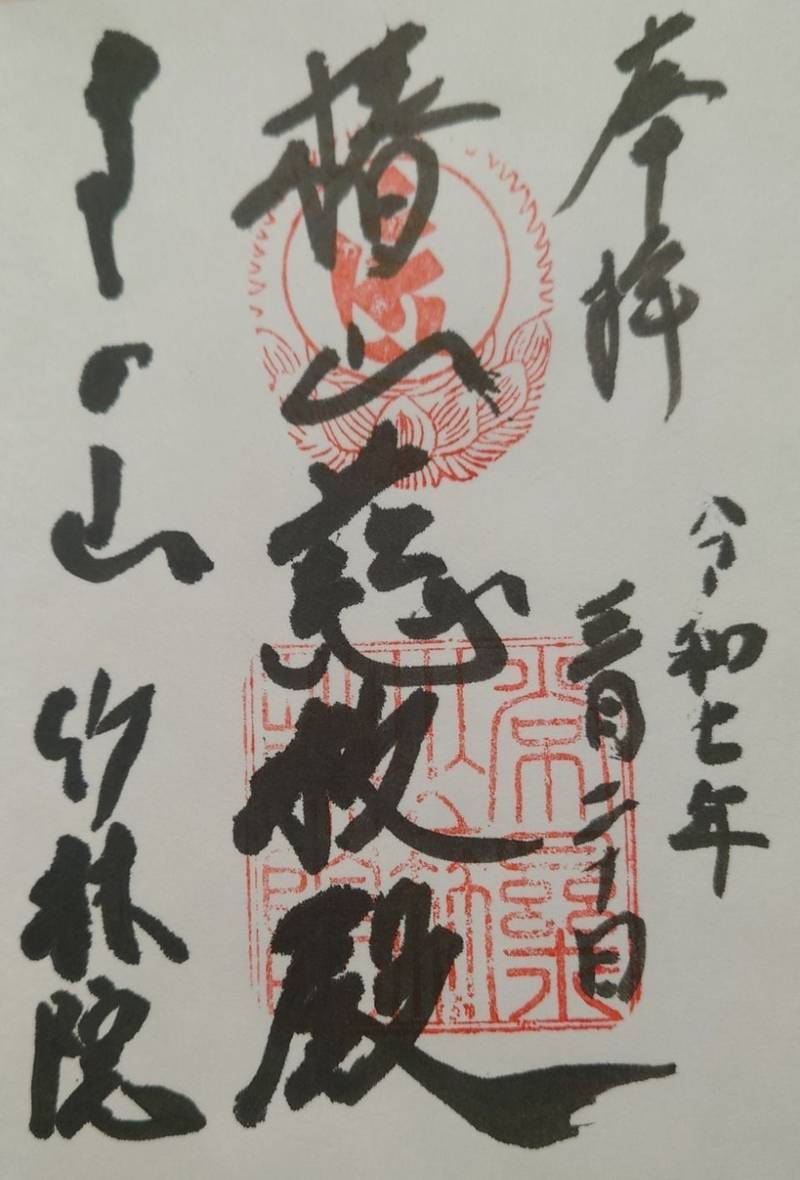 奉拝
令和七年
三月二十日
椿山慈救殿
竹林院